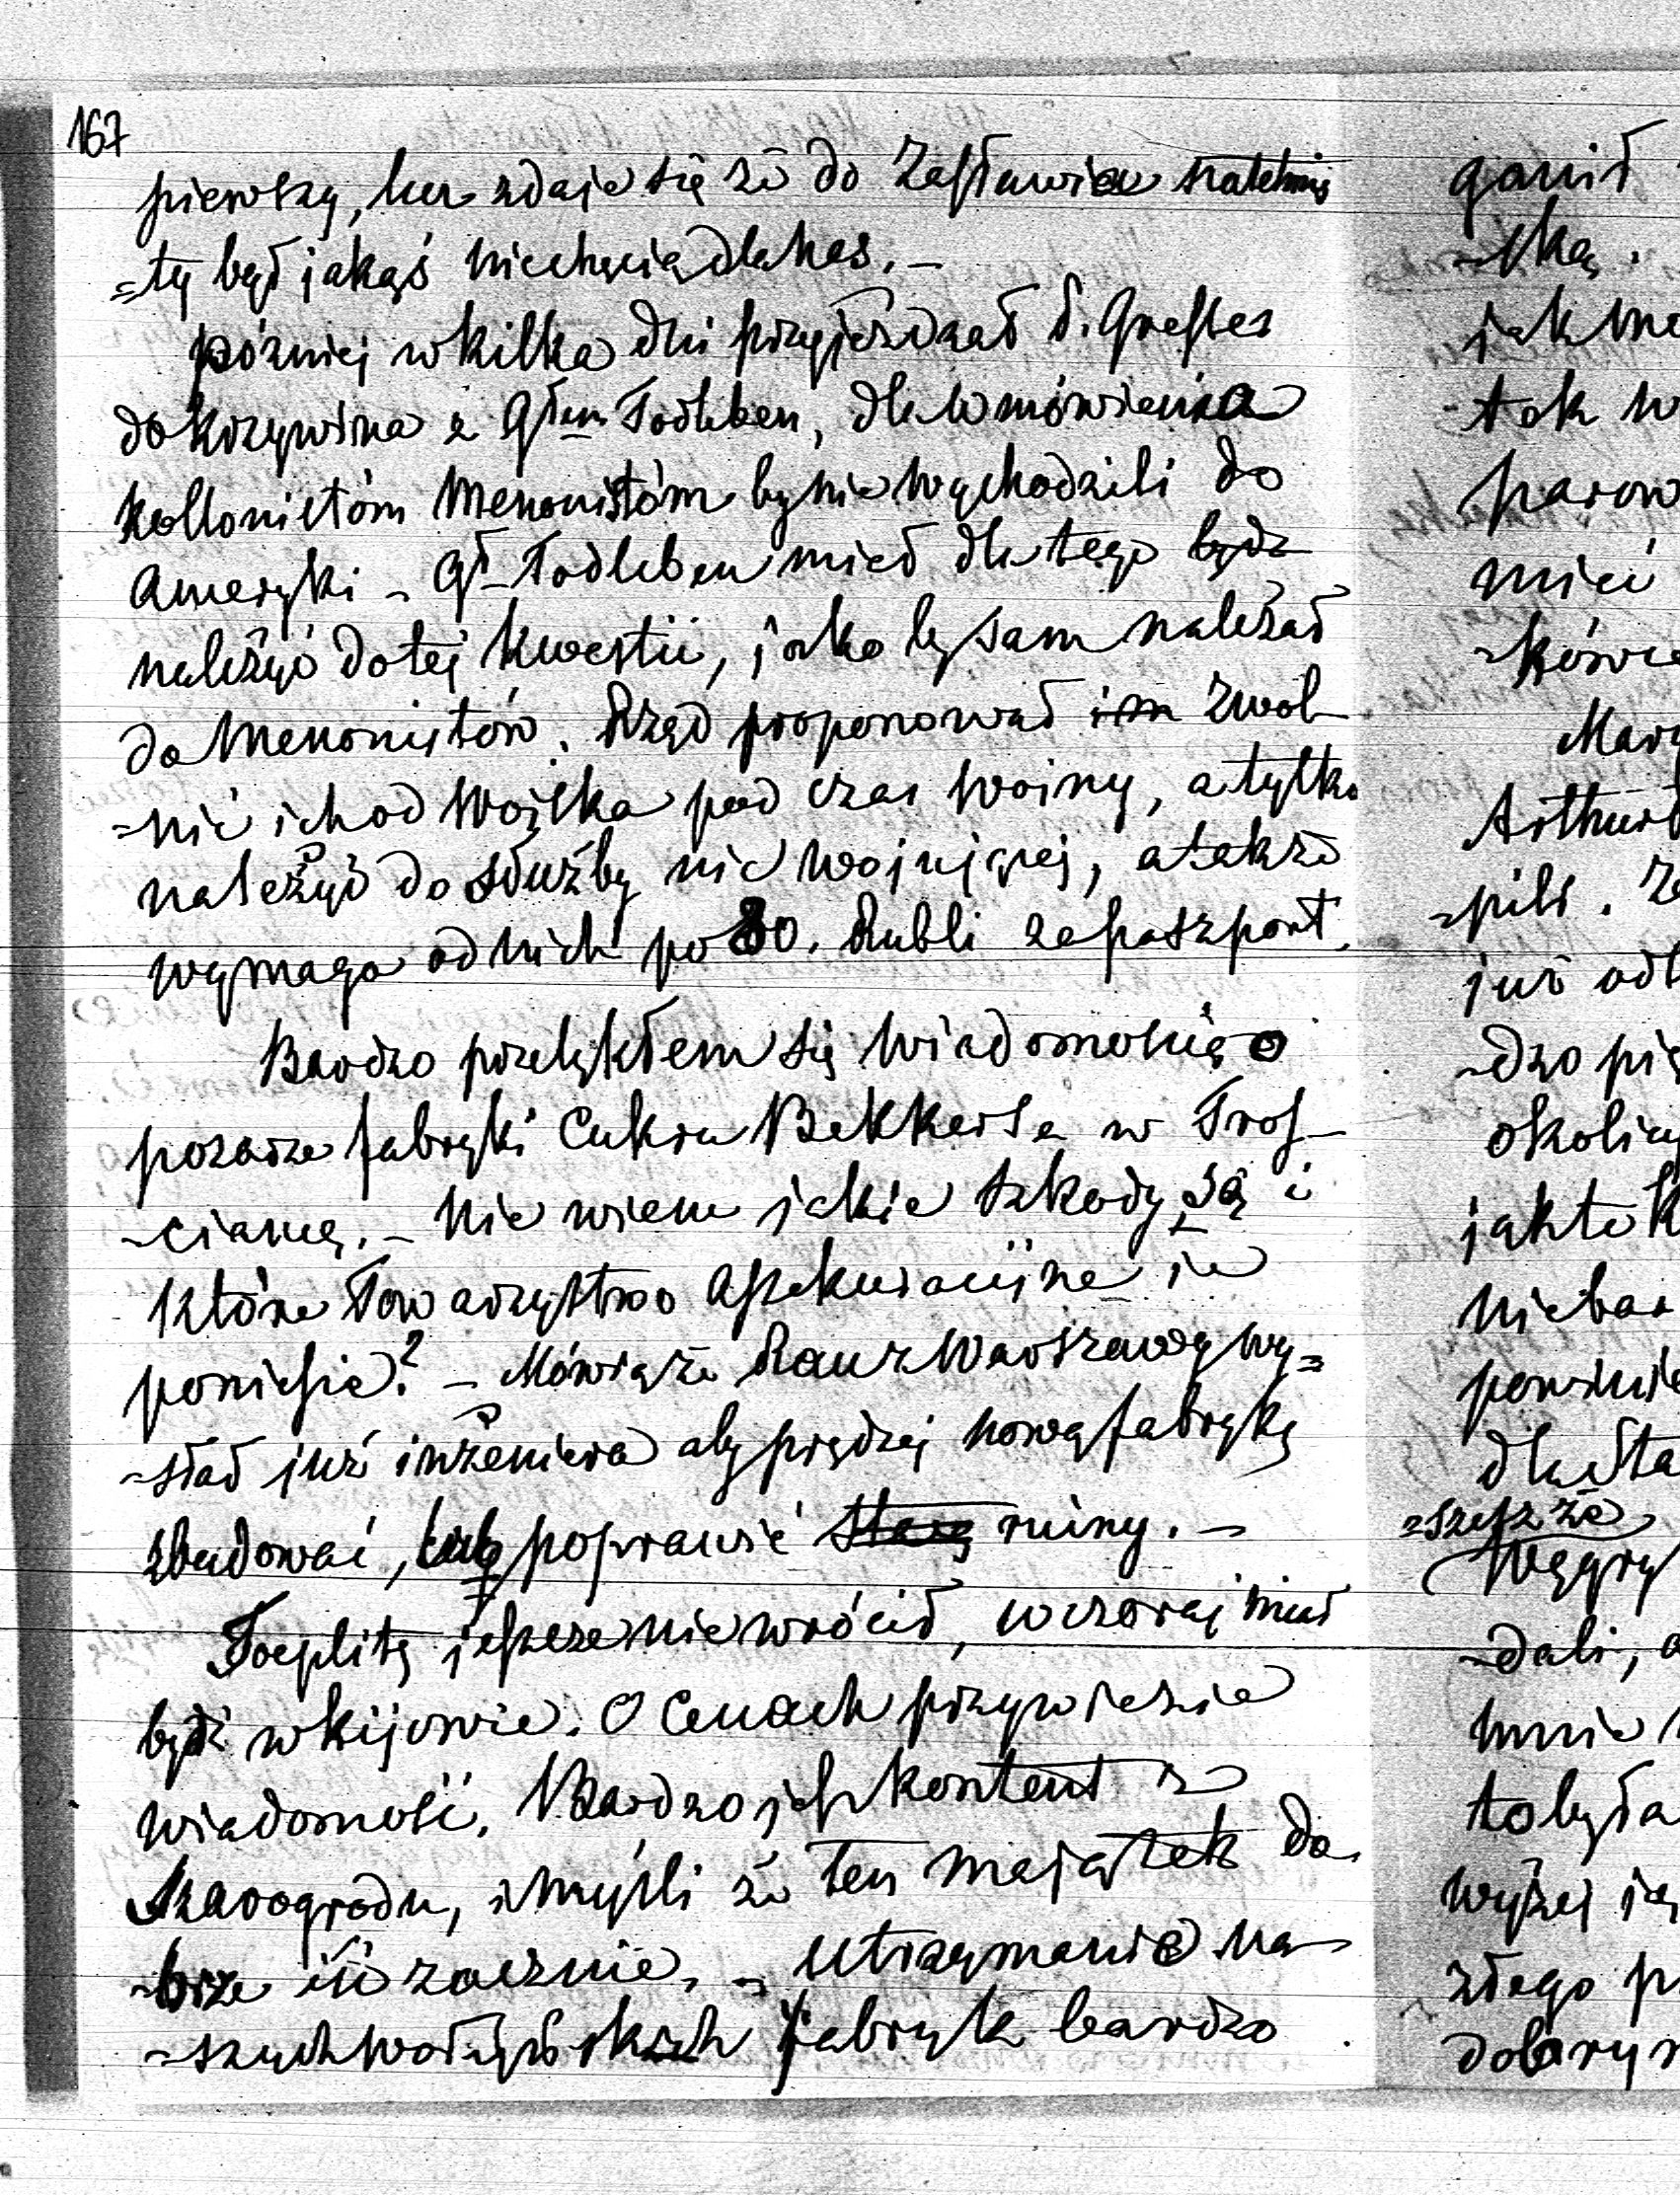 167
pierwszy, lecz zdaje się że do Zasławia
=ty był jakąś niechęcią dla nas. –
później w kilka dni przyjeżdżał
do Krzywina z Głem Todleben, dla wmówienia
kollonistóm Menonistóm by nie wychodzili do
Ameryki – Gł Todleben miał dla tego
należyć do tej kwestii, jako by sam należał
do Menonistów. Rząd proponował im zwol-
=nić ich od wojska pod czas wojny, a tylko
należyć do służby nie wojującej, a także
wymaga od nich po 80. Rubli za paszport.
Bardzo przelękłem się wiadomością o
pożarze fabryki Cukru w Tros-
-ciancą. – Nie wiem jakie szkody są i
które Towarzystwo Assekuracijne je
poniesie? – Mówią że Rau z Warszawy wy=
-słał już inżeniera aby prędzej nową fabrykę
zbudować, lub poprawić starą ruiny. –
Toeplitz jeszcze nie wrócił, wczoraj miał
być w Kijowie. O Cenach przywiezie
wiadomość. Bardzo jest kontent z
Szarogrodu, i myśli że ten majątek do-
-brze iść zacznie. – Utrzymanie na-
-szych wołyńskich fabryk bardzo
ganił
-ską.
tak w
mieć
Arthur
-pili. Z
-dzo pię
jak te k
dla Sta
Węgry
-dali, a
to była
wyżej ją
złego p